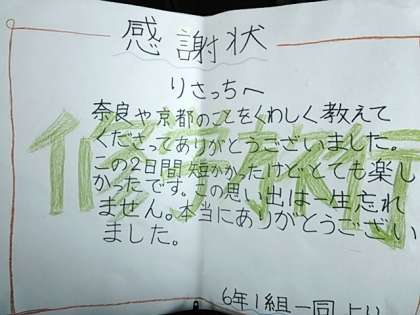 感謝状
りさっちへ
奈良や京都のことをくわしく教えて
くださってありがとうございました。
この2日間短かかったけどとても楽し
かったです。この思い出は一生忘れ
ません。本当にありがとうござい
ました。
6年1組一同より
修学旅行